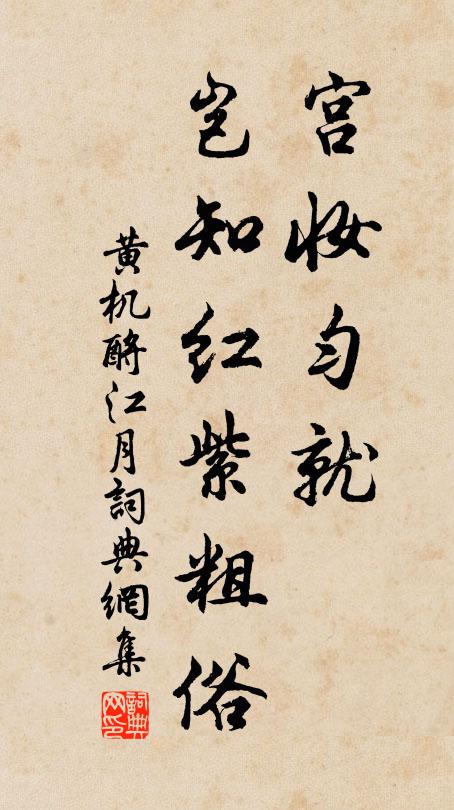 宫妆匀就
岂知红紫粗俗
黄机酹江月詞典網集
詞典网印